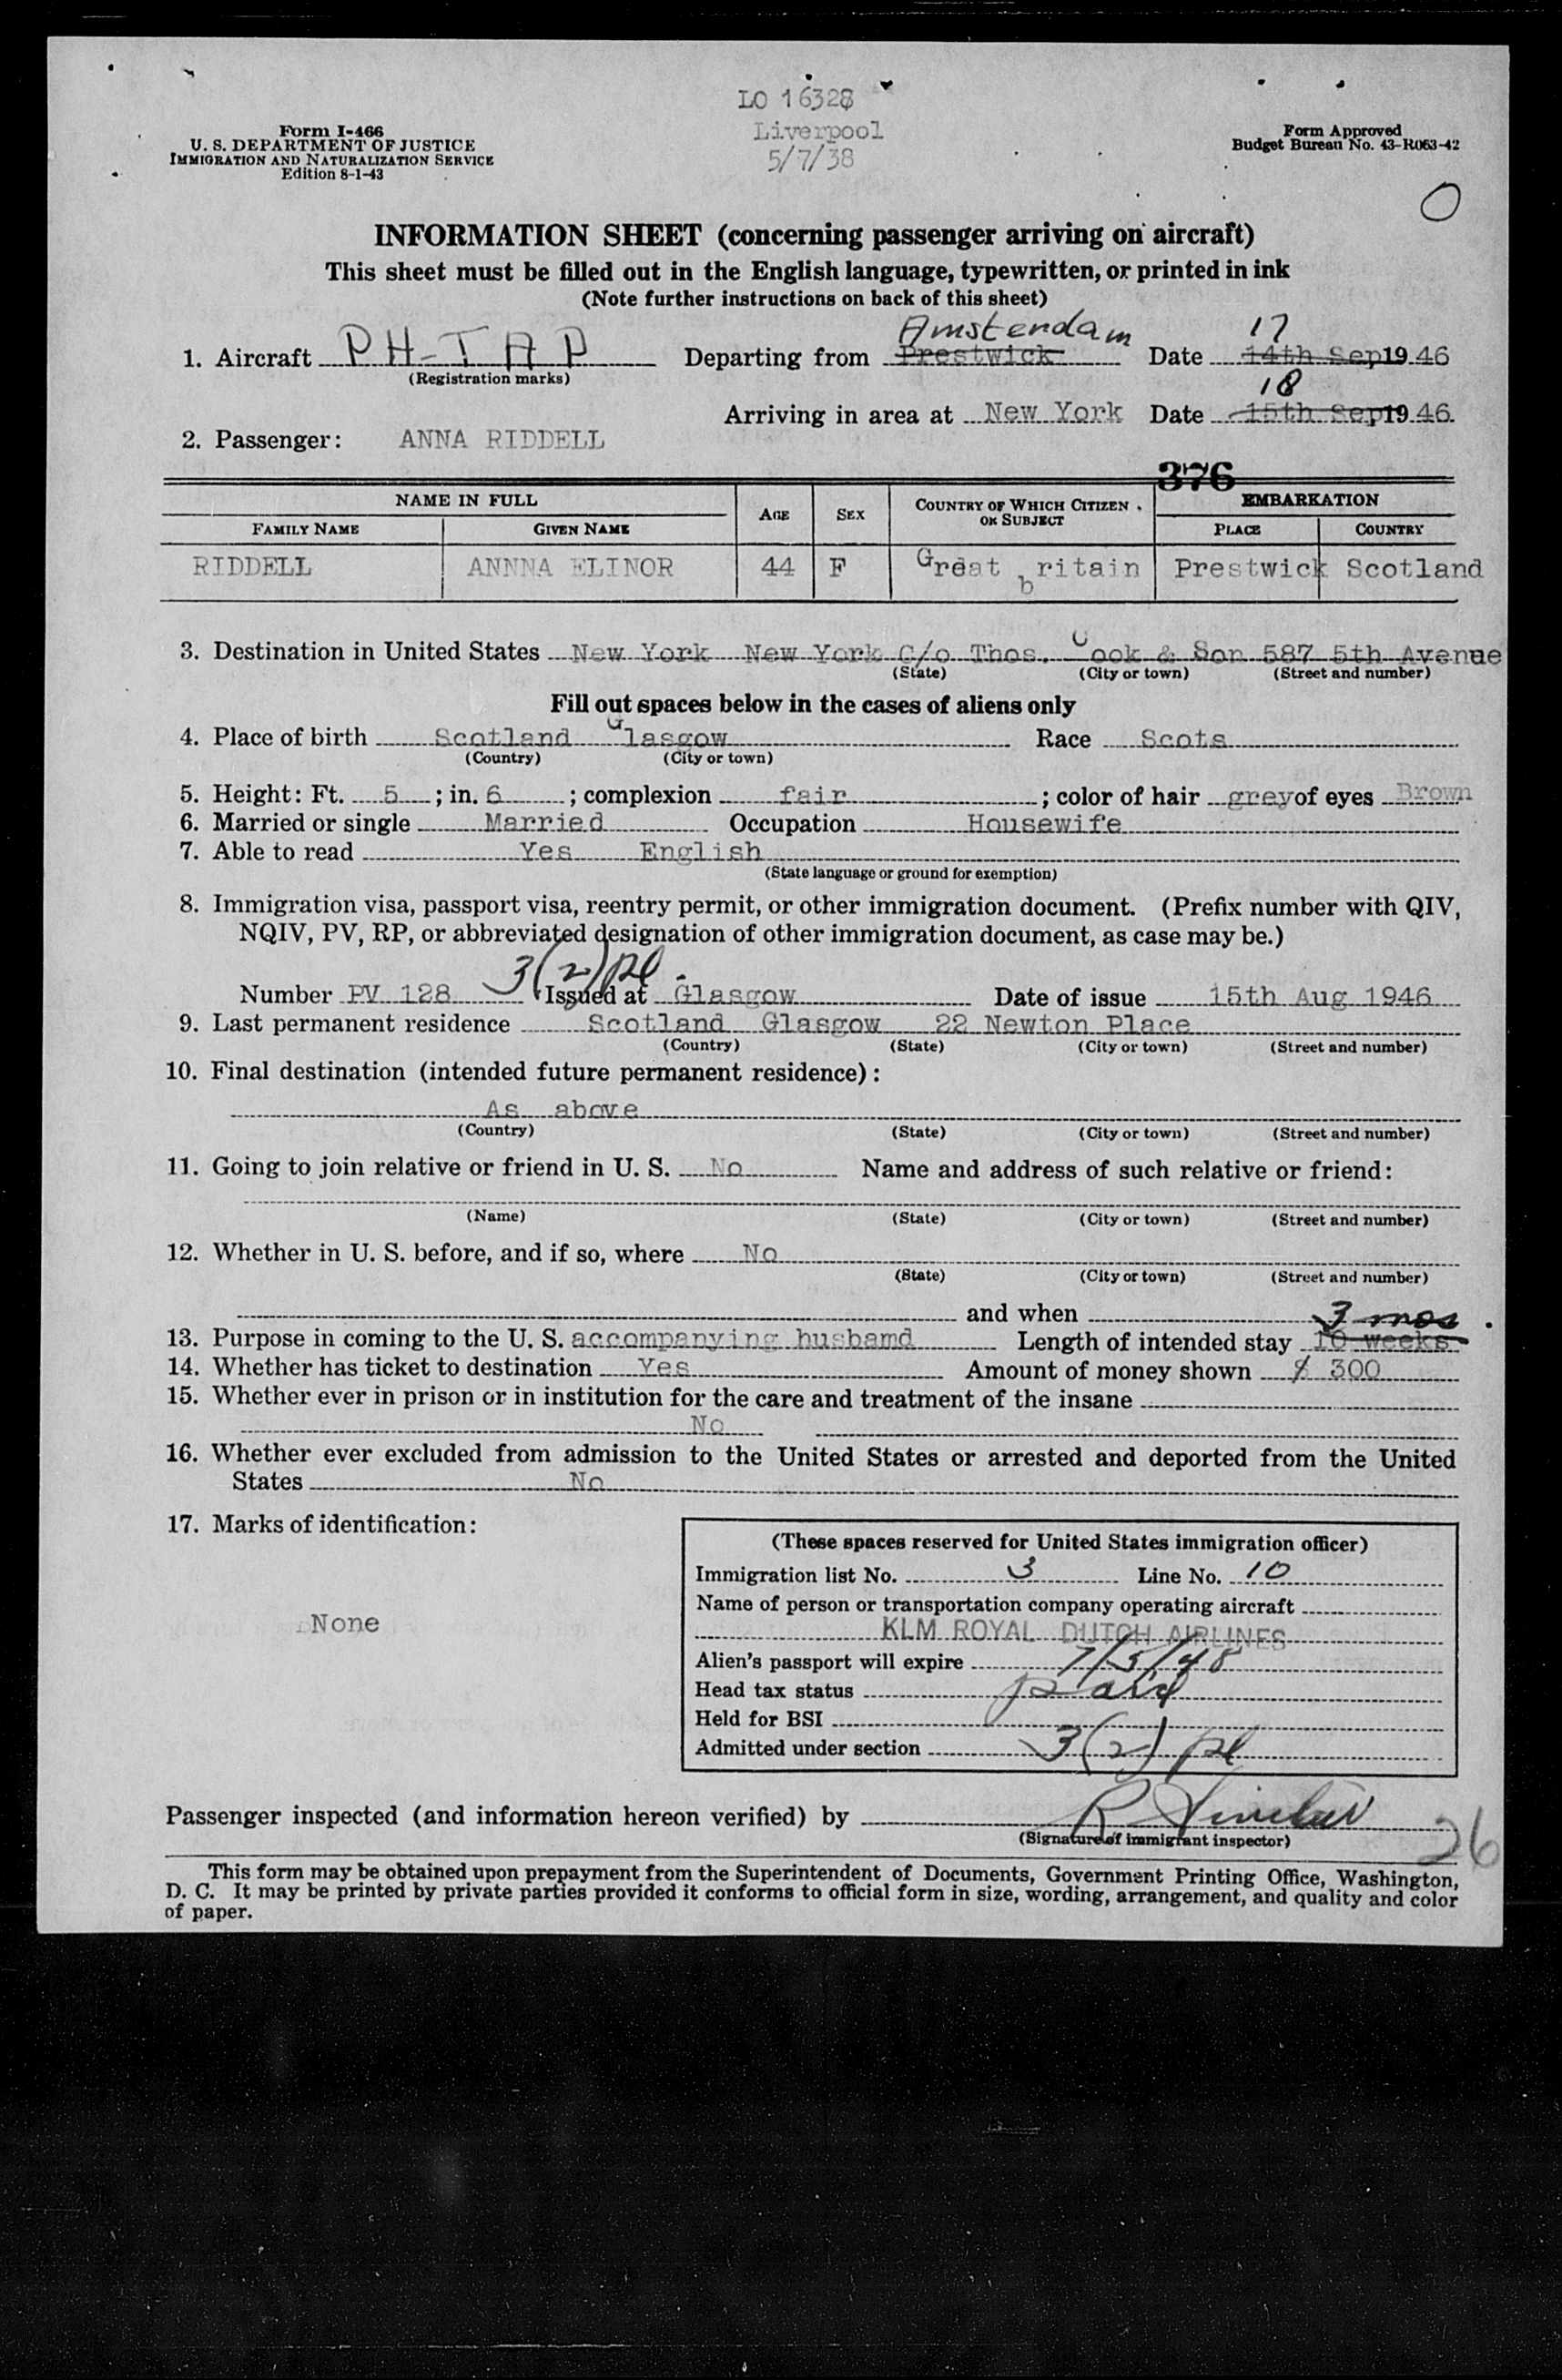 LO 16328
Liverpool
5/7/38
Form I-466
U. S. DEPARTMENT OF JUSTICE
IMMIGRATION AND NATURALIZATION SERVICE
Edition 8-1-43
Form Approved
Budget Bureau No. 43-R063-42
O
INFORMATION SHEET (concerning passenger arriving on aircraft)
This sheet must be filled out in the English language, typewritten, or printed in ink
(Note further instructions on back of this sheet)
Amsterdam 17
1. Aircraft PH-TAP Departing from Prestwick Date 14th Sep 19 46
(Registration marks)
18
Arriving in area at New York Date 15th Sep 19 46
2. Passenger: ANNA RIDDELL
376
NAME IN FULL AGE SEX COUNTRY OF WHICH CITIZEN OR SUBJECT EMBARKATION
FAMILY NAME GIVEN NAME PLACE COUNTRY
RIDDELL ANNNA ELINOR 44 F Great britain Prestwick Scotland
3. Destination in United States New York New York C/o Thos. Cook & Son 587 5th Avenue
(State) (City or town) (Street and number)
Fill out spaces below in the cases of aliens only
4. Place of birth Scotland Glasgow Race Scots
(Country) (City or town)
5. Height: Ft. 5 ; in. 6 ; complexion fair ; color of hair grey of eyes Brown
6. Married or single Married Occupation Housewife
7. Able to read Yes English
(State language or ground for exemption)
8. Immigration visa, passport visa, reentry permit, or other immigration document. (Prefix number with QIV,
NQIV, PV, RP, or abbreviated designation of other immigration document, as case may be.)
3(2) pl.
Number PV 128 Issued at Glasgow Date of issue 15th Aug 1946
9. Last permanent residence Scotland Glasgow 22 Newton Place
(Country) (State) (City or town) (Street and number)
10. Final destination (intended future permanent residence):
As above
(Country) (State) (City or town) (Street and number)
11. Going to join relative or friend in U. S. No Name and address of such relative or friend:
(Name) (State) (City or town) (Street and number)
12. Whether in U. S. before, and if so, where No
(State) (City or town) (Street and number)
and when
3 mos.
13. Purpose in coming to the U. S. accompanying husband Length of intended stay 10 weeks
14. Whether has ticket to destination Yes Amount of money shown $ 300
15. Whether ever in prison or in institution for the care and treatment of the insane
No
16. Whether ever excluded from admission to the United States or arrested and deported from the United
States No
17. Marks of identification:
None
(These spaces reserved for United States immigration officer)
Immigration list No. 3 Line No. 10
Name of person or transportation company operating aircraft
KLM ROYAL DUTCH AIRLINES
Alien's passport will expire 7/5/48
Head tax status paid
Held for BSI
Admitted under section 3(2) pl
Passenger inspected (and information hereon verified) by R
(Signature of immigrant inspector)
26
This form may be obtained upon prepayment from the Superintendent of Documents, Government Printing Office, Washington,
D. C. It may be printed by private parties provided it conforms to official form in size, wording, arrangement, and quality and color
of paper.